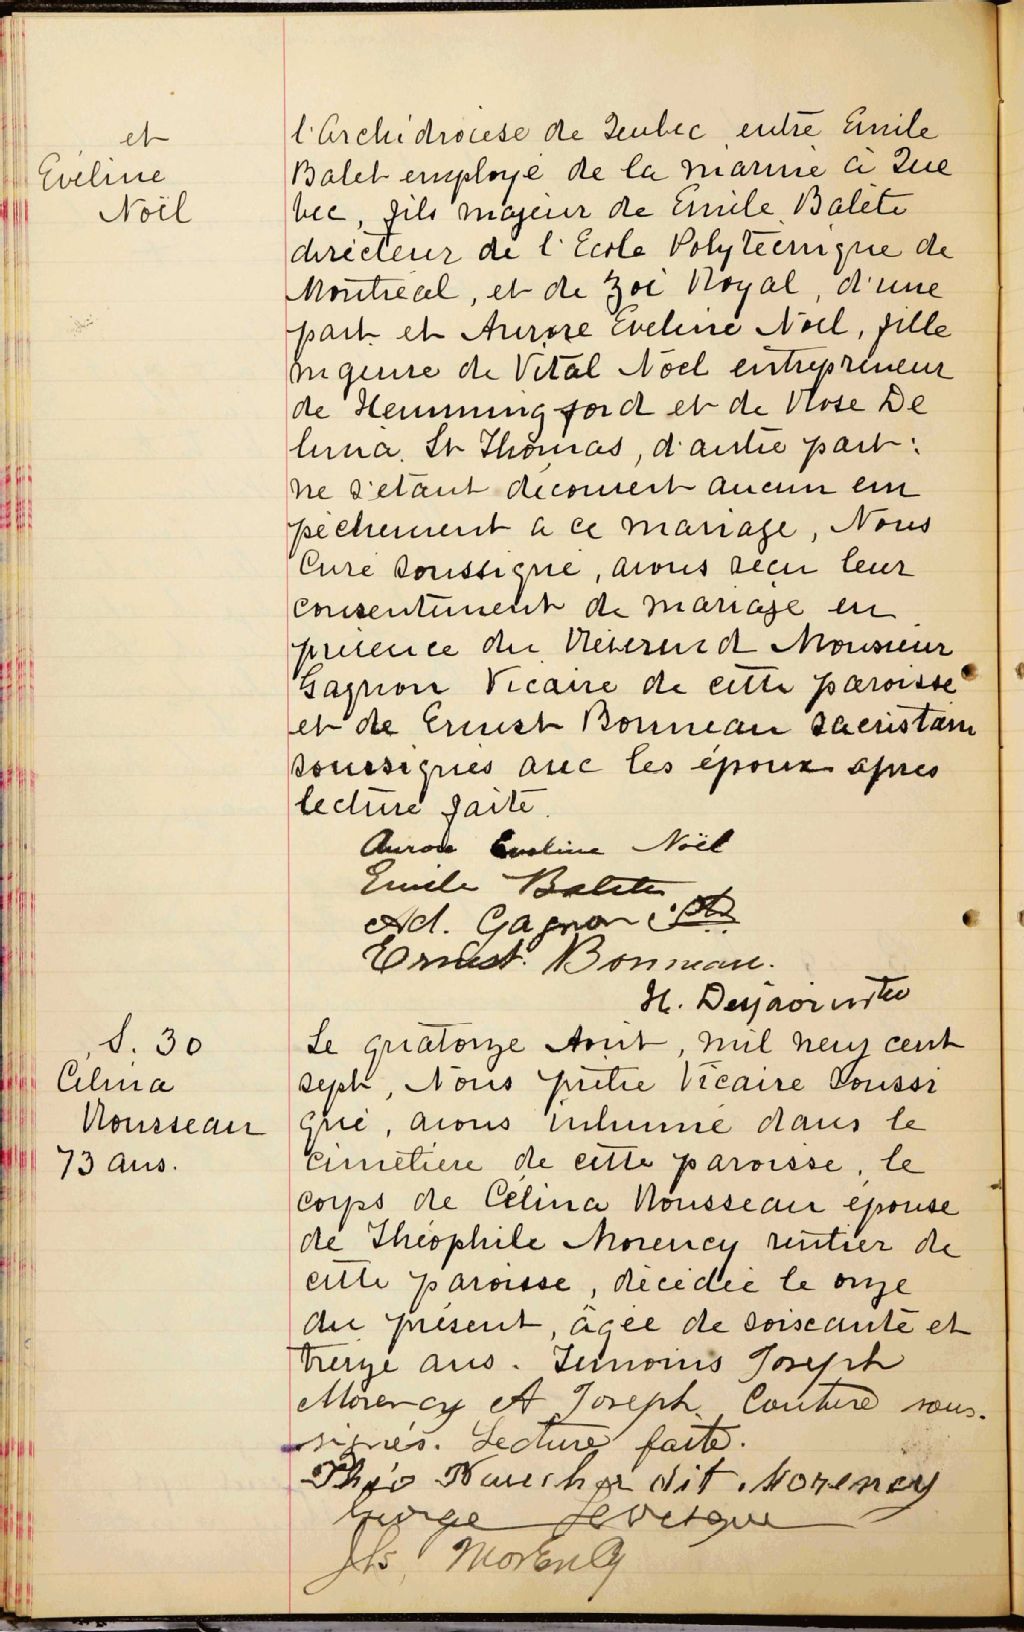 et
Evéline
Noël
l'Archidiocèse de Quebec entre Emile
Balet employé de la marine à Que
bec, fils majeur de Emile Balète
directeur de l'Ecole Polytecnique de
Montréal, et de Zoé Royal, d'une
part et Aurore Eveline Noël, fille
mgeure de Vital Noël entrepreneur
de Hemmingford et de Rose De
lima St Thomas, d'autre part:
ne s'étant découvert aucun em
pêchement a ce mariage, Nous
Curé soussigné, avons reçu leur
consentement de mariage en
présence du Révérend Monsieur
Gagnon Vicaire de cette paroisse
et de Ernest Bonneau sacristain
soussignés avec les époux apres
lecture faite.
Aurore Eveline Noël
Emile Balete
Ad. Gagnon ptr
Ernest. Bonneau.
H.
S. 30
Célina
Rousseau
73 ans.
Le quatorze Août, mil neuf cent
sept, Nous prêtre Vicaire soussi
gné, avons inhumé dans le
cimetière de cette paroisse, le
corps de Célina Rousseau épouse
de Théophile Morency rentier de
cette paroisse, décédée le onze
du présent, âgée de soixante et
treize ans. Témoins Joseph
Morency et Joseph Couture sous-
signés. Lecture faite.
Théo dit Morency
George Levesque
Jos. Morency